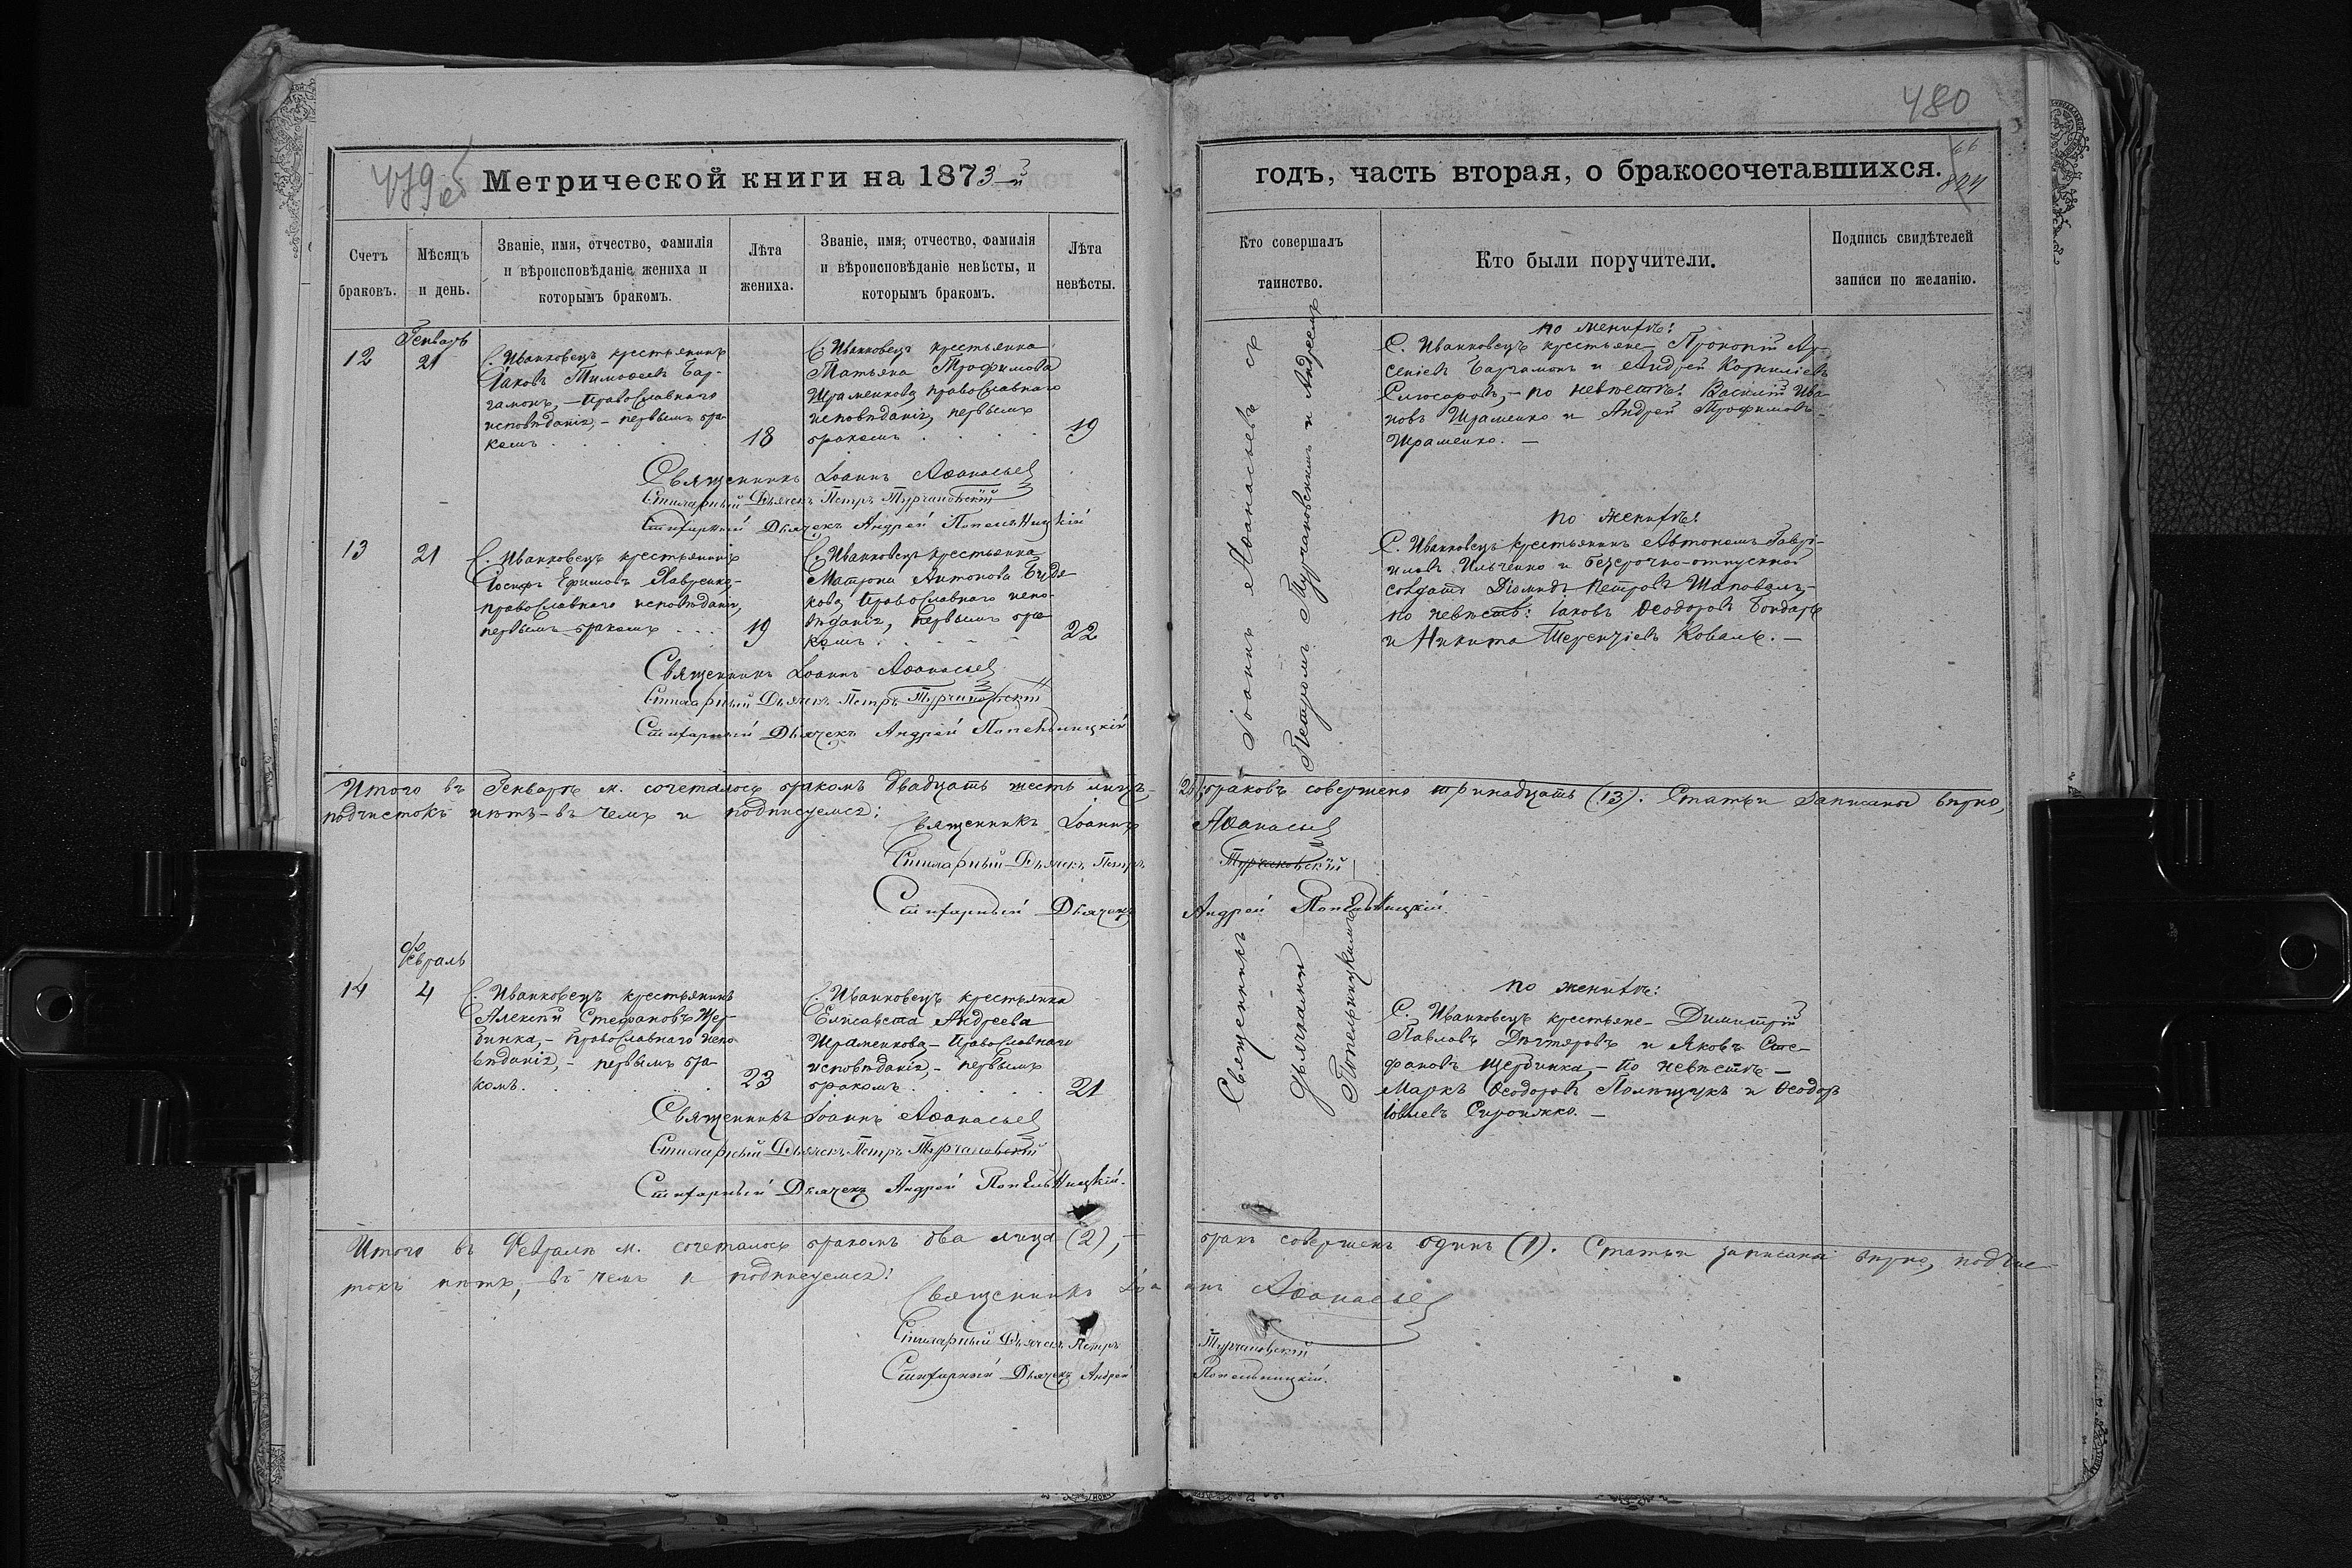 479об
Метрической книги на 1873-й
Счетъ браковъ.
Мѣсяцъ и день.
Званіе, имя, отчество, фамилія
и вѣроисповѣданіе жениха и
которымъ бракомъ.
Лѣта
жениха.
Званіе, имя, отчество, фамилія
и вѣроисповѣданіе невѣсты, и
которымъ бракомъ.
Лѣта
невѣсты.
Генварь
12
21
С. Иванковецъ крестьянинъ
Іаковъ Тимофеевъ Бар-
гамонъ, – православнаго
исповѣданія, – первымъ бра-
комъ
18
С. Иванковецъ крестьянка
Татьяна Трофимова
Шраменкова, православнаго
исповѣданія, первымъ
бракомъ
19
Священникъ Іоаннъ Аѳанасьев
Стихарный Дьячекъ Петръ Турчановскій
Стихарный Дьячекъ Андрей Попельницкій
13
21
С. Иванковецъ крестьянинъ
Іосифъ Ефимовъ Лавренко,-
православнаго исповѣданія,
первымъ бракомъ
19
С. Иванковецъ крестьянка
Матрона Антонова
кова, православнаго испо-
вѣданія, первымъ бра-
комъ
22
Священникъ Іоаннъ Аѳанасьев
Стихарный Дьячекъ Петръ Турчановскій
Стихарный Дьячекъ Андрей Попельницкій
Итого въ Генварѣ м. сочеталось бракомъ двадцать шесть лицъ-
подчистокъ нѣтъ-въ чемъ и подписуемся:
Священникъ Іоаннъ
Стихарный Дьячекъ Петръ
Стихарный Дьячекъ
Февраль
14
4
С. Иванковецъ крестьянинъ
Алексѣй Стефановъ Щер-
бинка, – православнаго испо-
вѣданія, – первымъ бра-
комъ.
23
С. Иванковецъ крестьянка
Елисавета Андреева
Шраменкова, – православнаго
исповѣданія, – первымъ
бракомъ.
21
Священникъ Іоаннъ Аѳанасьев
Стихарный Дьячекъ Петръ Турчановскій
Стихарный Дьячекъ Андрей Попельницкій.
Итого въ Февралѣ м. сочеталось бракомъ два лица (2), –
токъ нѣтъ, – въ чемъ и подписуемся:
Священникъ Іоа
Стихарный Дьячекъ Петръ
Стихарный Дьячекъ Андрей
480
66
годъ, часть вторая, о бракосочетавшихся.
Кто совершалъ
таинство.
Кто были поручители.
Подпись свидѣтелей
записи по желанію.
Священникъ Іоаннъ Аѳанасьевъ съ
дьячками Петромъ Турчановскимъ и Андреемъ
Попельницкимъ
по женихѣ:
С. Иванковецъ крестьяне Прокопій Ар-
сеніевъ Баргамонъ и Андрей Корниліевъ
Слюсаровъ, – по невѣстѣ: Василій Ива-
новъ Шраменко и Андрей Трофимовъ
Шраменко. –
по женихѣ:
С. Иванковецъ крестьянинъ Автономъ Гаври-
иловъ Ильченко и безсрочно-отпускной
солдатъ Діомидъ Петровъ Шаповалъ, –
по невѣстѣ: Іаковъ Ѳеодоровъ Бондарь
и Никита Терентіевъ Коваль. –
26, браковъ совершено тринадцать (13). Статьи записаны вѣрно,
Аѳанасьев
Турчановскій
Андрей Попельницкій.
по женихѣ:
С. Иванковецъ крестьяне – Димитрій
Павловъ Дегтяровъ и Яковъ Сте-
фановъ Щербинка, – по невѣстѣ –
Маркъ Ѳеодоровъ Полищукъ и Ѳеодоръ
Іовлевъ
бракъ совершенъ одинъ (1). Статьи записаны вѣрно, подчис-
ннъ Аѳанасьев
Турчановскій
Попельницкій.